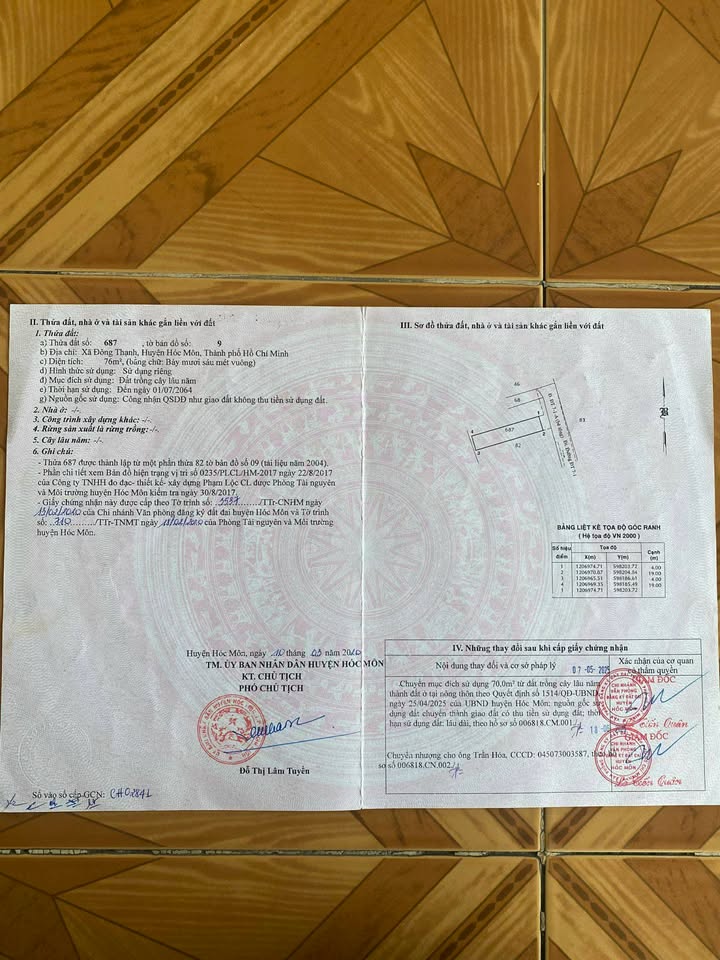 II. Thửa đất, nhà ở và tài sản khác gắn liền với đất
1. Thửa đất:
a) Thửa đất số: 687 , tờ bản đồ số: 9
b) Địa chỉ: Xã Đông Thạnh, Huyện Hóc Môn, Thành phố Hồ Chí Minh
c) Diện tích: 76m², (bằng chữ: Bảy mươi sáu mét vuông)
d) Hình thức sử dụng: Sử dụng riêng
đ) Mục đích sử dụng: Đất trồng cây lâu năm
e) Thời hạn sử dụng: Đến ngày 01/07/2064
g) Nguồn gốc sử dụng: Công nhận QSDĐ như giao đất không thu tiền sử dụng đất.
2. Nhà ở: -/-
3. Công trình xây dựng khác: -/-
4. Rừng sản xuất là rừng trồng: -/-
5. Cây lâu năm: -/-
6. Ghi chú:
- Thửa 687 được thành lập từ một phần thửa 82 tờ bản đồ số 09 (tài liệu năm 2004).
- Phần chi tiết xem Bản đồ hiện trạng vị trí số 0235/PLCL/HM-2017 ngày 22/8/2017
của Công ty TNHH đo đạc- thiết kế- xây dựng Phạm Lộc CL được Phòng Tài nguyên
và Môi trường huyện Hóc Môn kiểm tra ngày 30/8/2017.
- Giấy chứng nhận này được cấp theo Tờ trình số: /TTr-CNHM ngày
của Chi nhánh Văn phòng đăng ký đất đai huyện Hóc Môn và Tờ trình
số: 710 /TTr-TNMT ngày của Phòng Tài nguyên và Môi trường
huyện Hóc Môn.
Huyện Hóc Môn, ngày 10 tháng 03 năm 2020
TM. ỦY BAN NHÂN DÂN HUYỆN HÓC MÔN
KT. CHỦ TỊCH
PHÓ CHỦ TỊCH
Đỗ Thị Lâm Tuyền
Số vào sổ cấp GCN: CH02841
III. Sơ đồ thửa đất, nhà ở và tài sản khác gắn liền với đất
46
68
83
687
82
1
2
3
4
BẢNG LIỆT KÊ TỌA ĐỘ GÓC RANH
( Hệ tọa độ VN 2000 )
Số hiệu điểm Tọa độ Cạnh (m)
X(m) Y(m)
1 1206974.71 598203.72
4.00
2 1206970.87 598204.84
19.00
3 1206965.51 598186.61
4.00
4 1206969.35 598185.49
19.00
1 1206974.71 598203.72
IV. Những thay đổi sau khi cấp giấy chứng nhận
Nội dung thay đổi và cơ sở pháp lý
Xác nhận của cơ quan có thẩm quyền
07 -05- 2025
GIÁM ĐỐC
Chuyển mục đích sử dụng 70,0m² từ đất trồng cây lâu năm
thành đất ở tại nông thôn theo Quyết định số 1514/QĐ-UBND
ngày 25/04/2025 của UBND huyện Hóc Môn; nguồn gốc sử
dụng đất chuyển thành giao đất có thu tiền sử dụng đất; thời
hạn sử dụng đất: lâu dài, theo hồ sơ số 006818.CM.001./.
CHI NHÁNH
VĂN PHÒNG
ĐĂNG KÝ ĐẤT ĐAI
HUYỆN
HÓC MÔN
GIÁM ĐỐC
Chuyển nhượng cho ông Trần Hóa, CCCD: 045073003587, theo hồ
sơ số 006818.CN.002./.
CHI NHÁNH
VĂN PHÒNG
ĐĂNG KÝ ĐẤT ĐAI
HUYỆN
HÓC MÔN